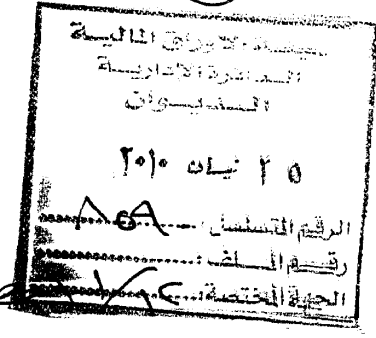 هيئة الاوراق المالية
الدائرة الإدارية
الديوان
٢٥ نيسان ٢٠١٠
الرقم المتسلسل: ٨٥٩
رقم الملف:
الجهة المختصة: